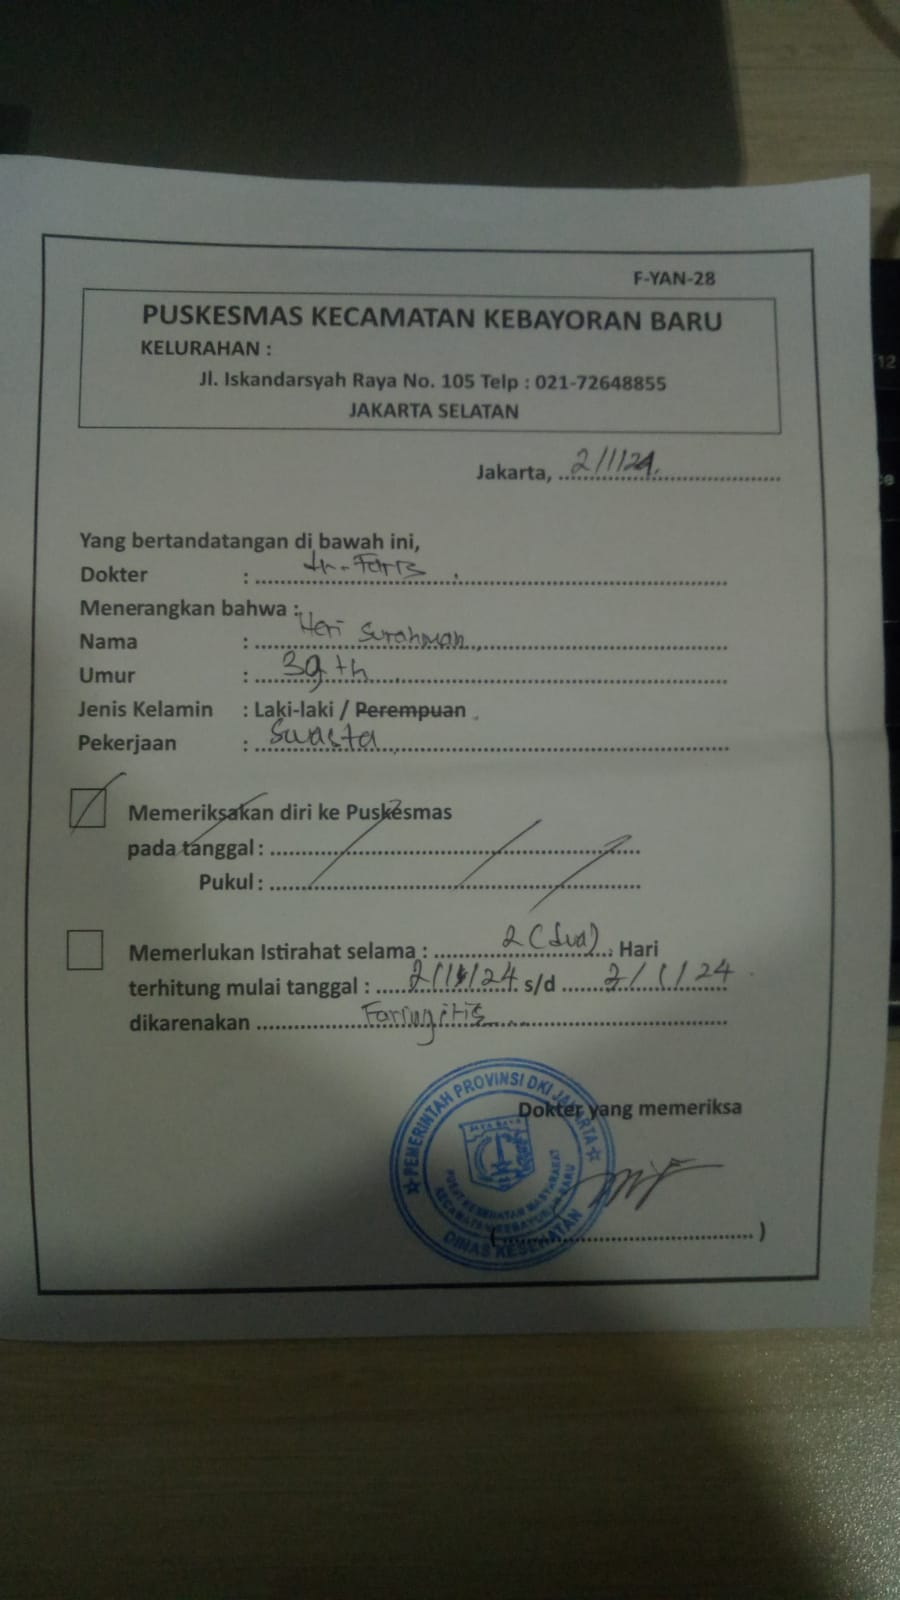 F-YAN-28
PUSKESMAS KECAMATAN KEBAYORAN BARU
KELURAHAN :
Jl. Iskandarsyah Raya No. 105 Telp : 021-72648855
JAKARTA SELATAN
Jakarta, 2/1/24
Yang bertandatangan di bawah ini,
Dokter : dr. Faris
Menerangkan bahwa :
Nama : Heri Surahman
Umur : 39 th
Jenis Kelamin : Laki-laki / Perempuan
Pekerjaan : Swasta
Memeriksakan diri ke Puskesmas
pada tanggal :
Pukul :
Memerlukan Istirahat selama : 2 (dua) Hari
terhitung mulai tanggal : 2/1/24 s/d 3/1/24
dikarenakan Faringitis
Dokter yang memeriksa
PEMERINTAH PROVINSI DKI JAKARTA
JAYA RAYA
PUSAT KESEHATAN MASYARAKAT
KECAMATAN KEBAYORAN BARU
DINAS KESEHATAN
( )